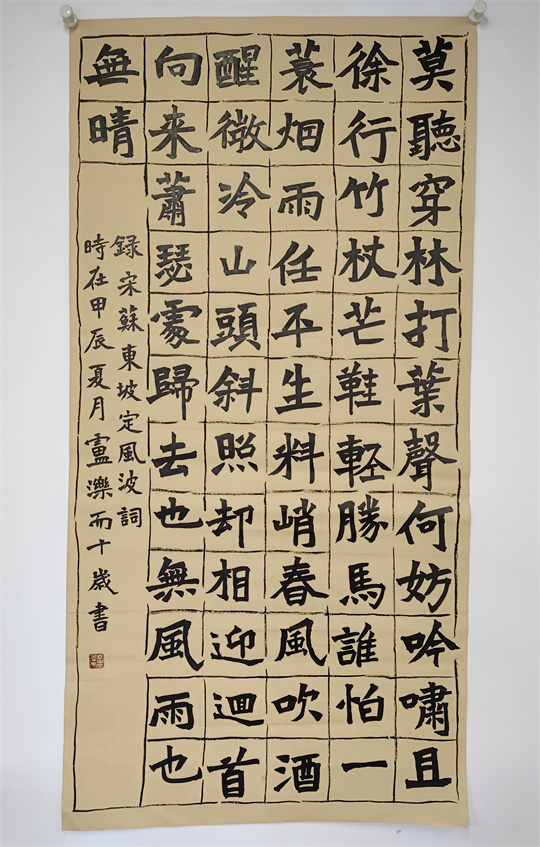 莫聽穿林打葉聲何妨吟嘯且
徐行竹杖芒鞋軽勝馬誰怕一
蓑烟雨任平生料峭春風吹酒
醒微冷山頭斜照却相迎迴首
向来蕭瑟處歸去也無風雨也
無晴
録宋蘇東坡定風波詞
時在甲辰夏月盧濼而十歲書